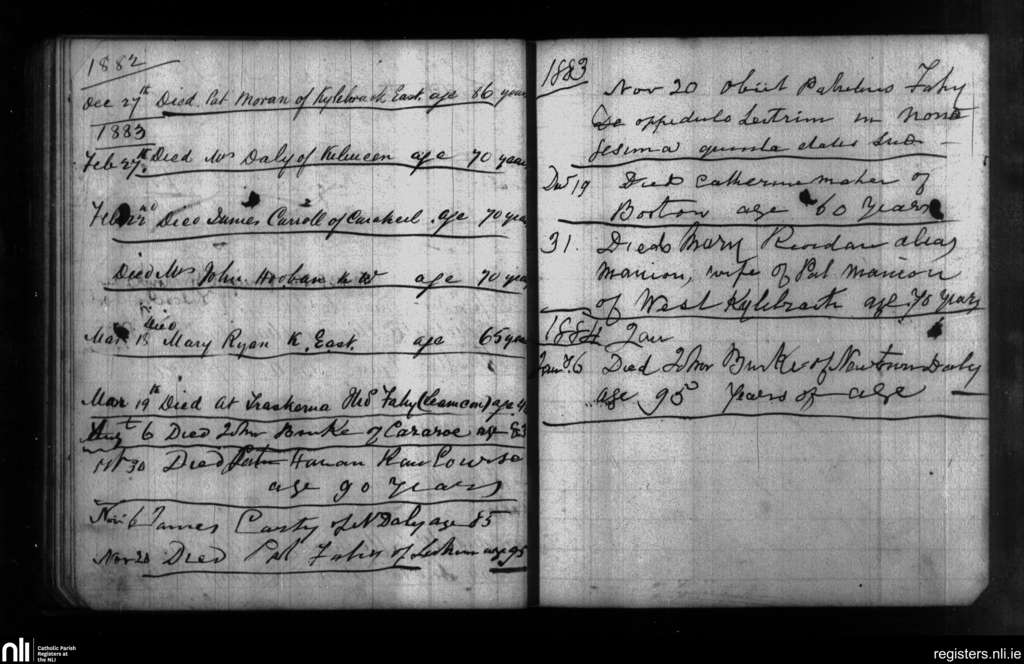 1882
Dec 27th Died Pat Moran of Kylebrack East. age 86 years
1883
Feb 27th Died Mrs Daly of age 70 years
Feb 22nd Died James Carroll of age 70 years
Died Mrs John Hooban K W age 70 years
Died
Mar 18 Mary Ryan K. East. age 65 years
Mar 19th Died at Thos Fahy age
Augt 6 Died John Burke of age 83
30 Died Hanan
age 90 years
Novr 6 James Casty of N Daly age 85
Nov 20 Died Pat Fahy of age 95
1883
Nov 20 Obiit Patritius Fahy
De oppidulo Leitrim in nona
gesima quinta
Decr 19 Died Catherine Maher of
Boston age 60 years
31. Died Mary Riordan alias
Manion, wife of Pat Manion
of West Kylebrack age 70 years
1884 Jan
6 Died John Burke of Newtown Daly
age 95 years of age
nli Catholic Parish
Registers at
the NLI
registers.nli.ie